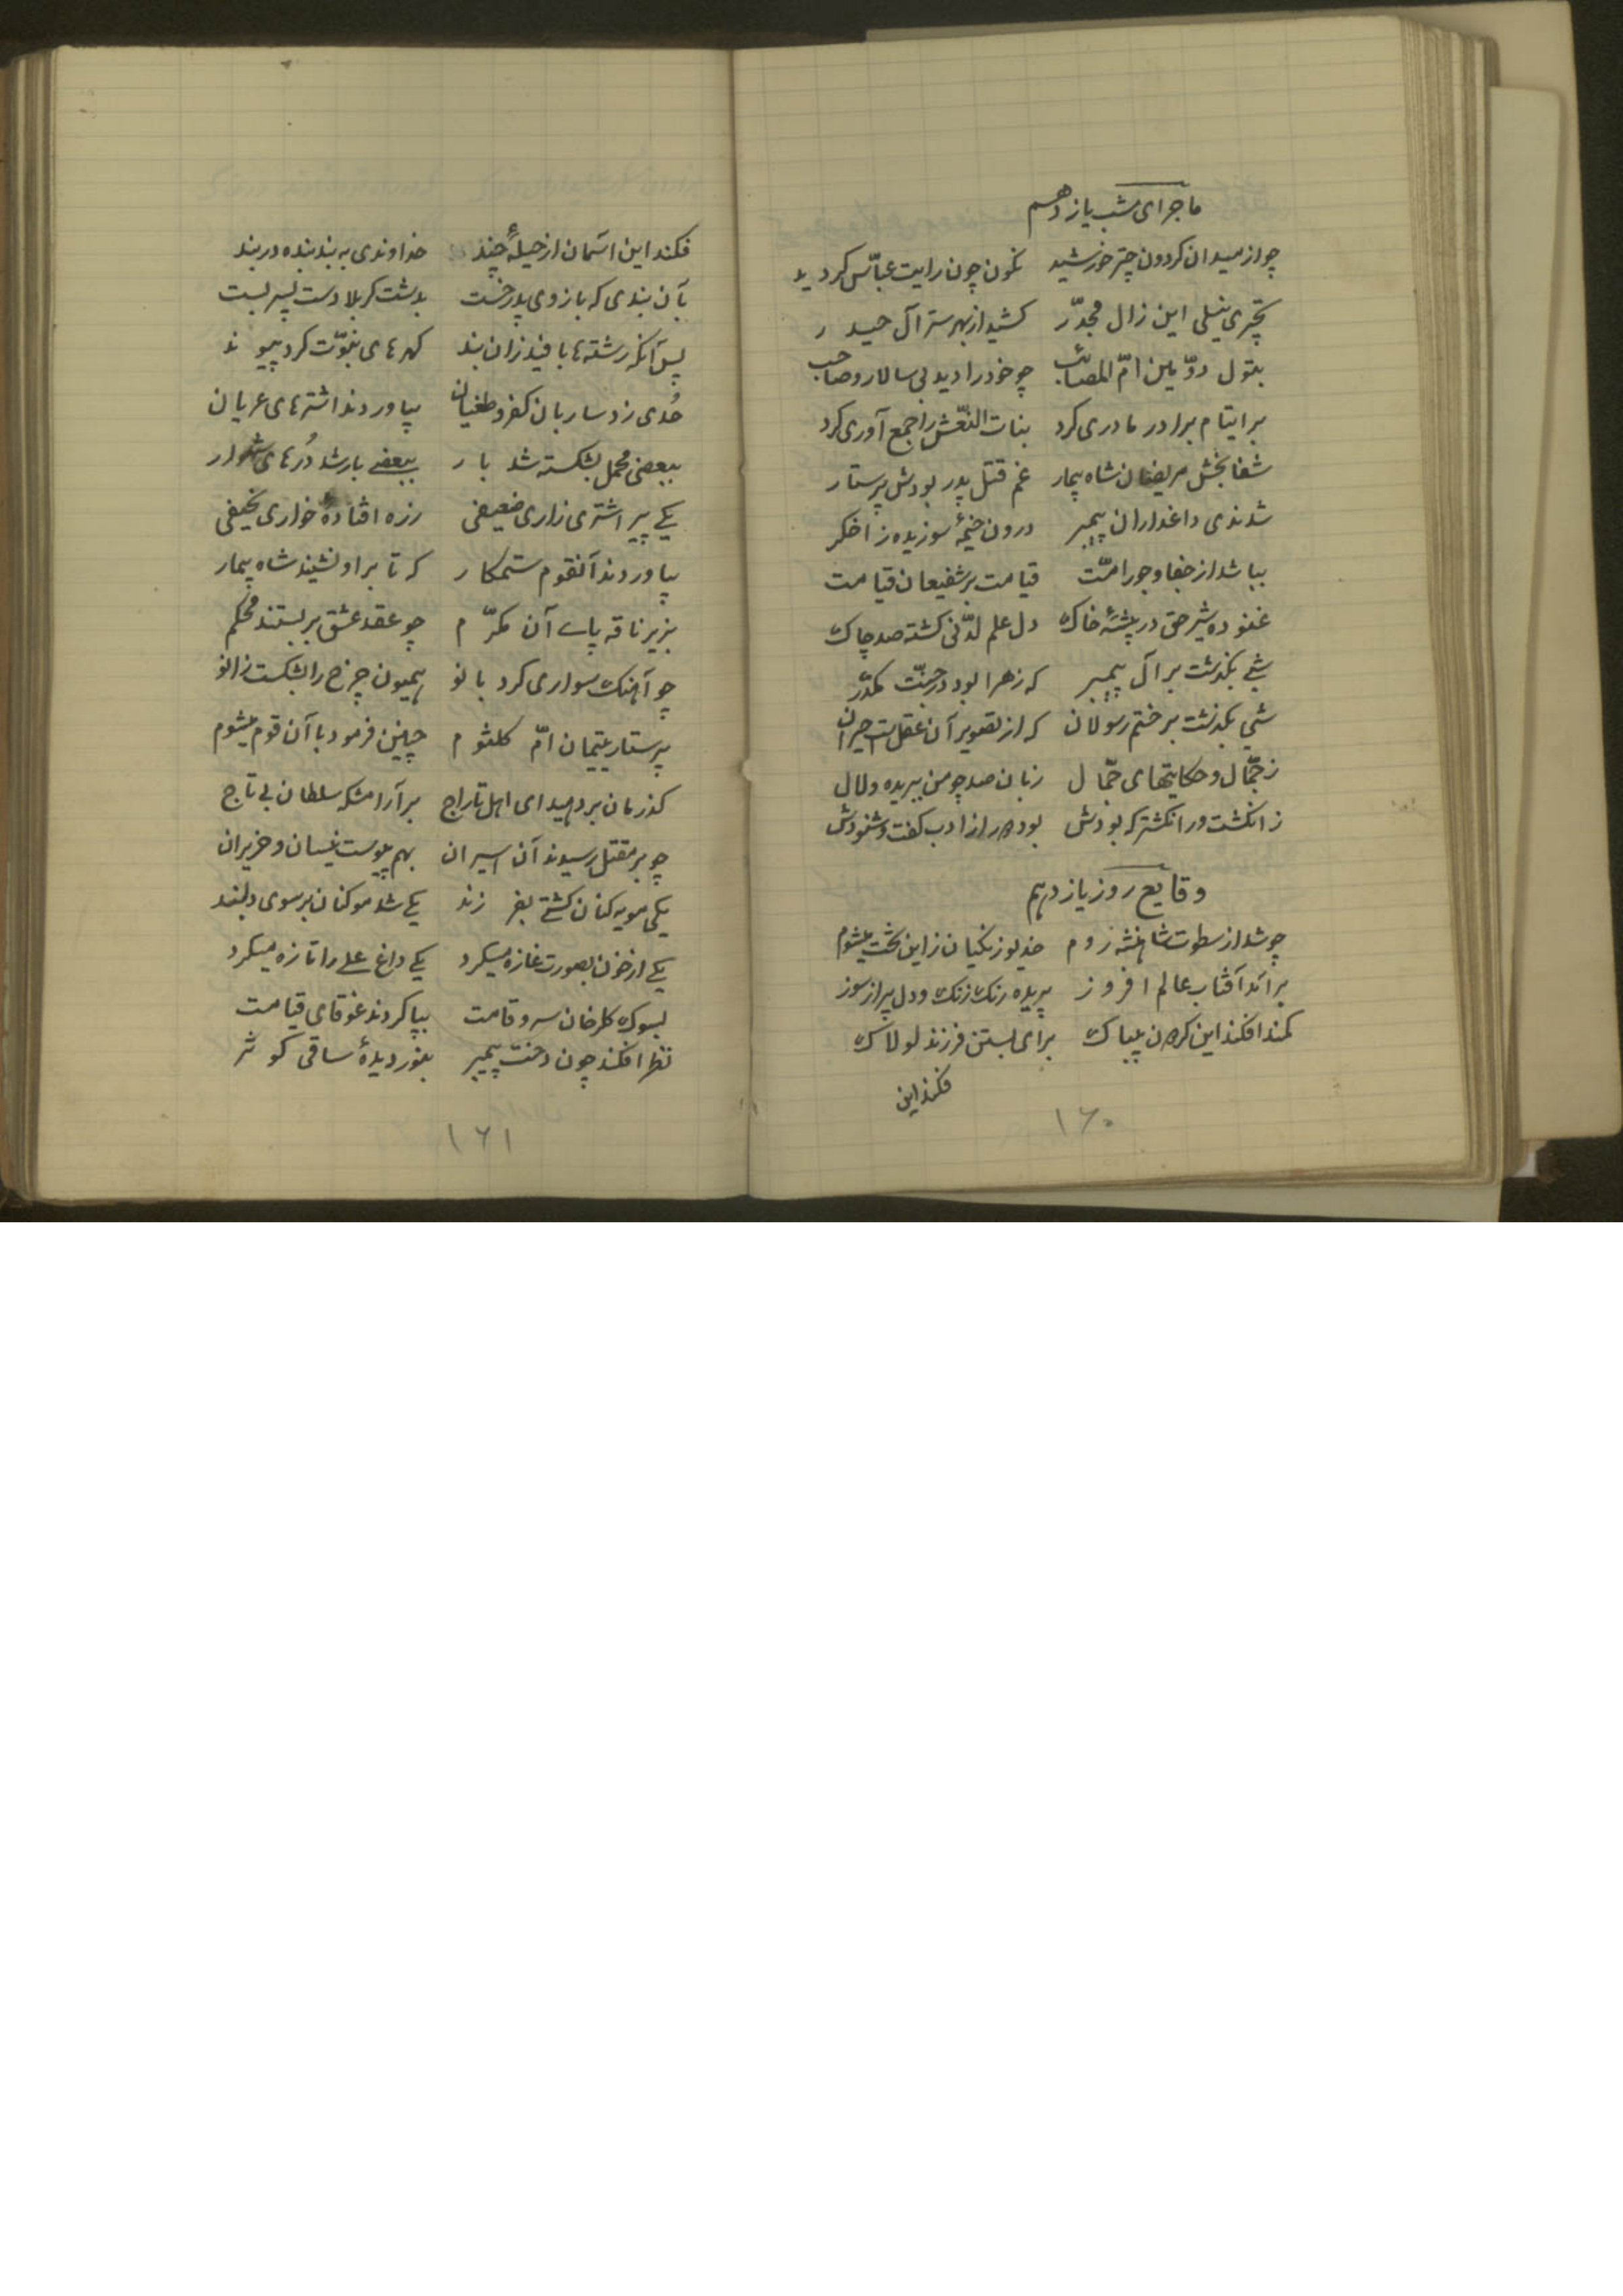 ماجرای شب یازدهم
چو از میدان کردون چتر خورشید نگون چون رایت عبّاس کردید
کشید از بهر ستر آل حیدر
بتول دوّمین امّ المصائب چو خود را دید بی سالار و صاحب
بر ایتام برادر مادری کرد بنات النّعش را جمع آوری کرد
شفا بخش مریضان شاه بیمار غم قتل پدر بودش پرستار
شدندی داغداران پیمبر درون خیمهٔ سوزیده ز اخکر
بپا شد از جفا و جور امّت قیامت بر شفیعان قیامت
غنوده شیر حق در پشتهٔ خاک دل علم لدّنی کشته صد چاک
شبی بگذشت بر آل پیمبر که زهرا بود در جنّت مکدّر
شبی بگذشت بر ختم رسولان که از تصویر آن عقلست حیران
ز جمّال و حکایتهای جمّال زبان صد چو من ببریده و لال
ز انکشت و ر انکشتر که بودش بود در راز ادب کفت و شنودش
وقایع روز یازدهم
چو شد از سطوت شاهنشه روم خدیو زنکیان ز این تخت میشوم
بر آمد آفتاب عالم افروز پریده رنک ز رنک و دل پر از سوز
کمند افکند این کردن بیباک برای بستن فرزند لولاک
فکند این
۱۶۰
فکند این آسمان از حیلهٔ چند خداوندی به بند بنده در بند
بآن بندی که بازوی پدر خست بدشت کربلا دست پسر بست
پس آنکه رشته ها بافید زان بند کهرهای نبوّت کرد پیوند
حُدی زد ساربان کفر و طغیان بیاوردند اشترهای عریان
ببعضی محمل بشکسته شد بار ببعضی بار شد دُرهای شهوار
یکی پیر اشتری زاری ضعیفی ز ره افتادهٔ خواری نحیفی
بیاوردند آنقوم ستمکار که تا بر او نشیند شاه بیمار
بزیر ناقه پای آن مکرّم چو عقد عشق بر بستند محکم
چو آهنک سواری کرد بانو هیون چرخ را بشکست زانو
پرستار یتیمان امّ کلثوم چنین فرمود با آن قوم میشوم
کذرمان بر دهید ای اهل تاراج بر آرامکه سلطان بی تاج
چو بر مقتل رسیدند آن اسیران بهم پیوست نیسان و حزیران
یکی مویه کنان کشتی بفرزند یکی شد مو کنان بر سوی دلبند
یکی از خون بصورت غازه میکرد یکی داغ علی را تازه میکرد
بسوک کلرخان سرو قامت بپا کردند غوقای قیامت
نظر افکند چون دخت پیمبر بنور دیدهٔ ساقی کوثر
۱۶۱